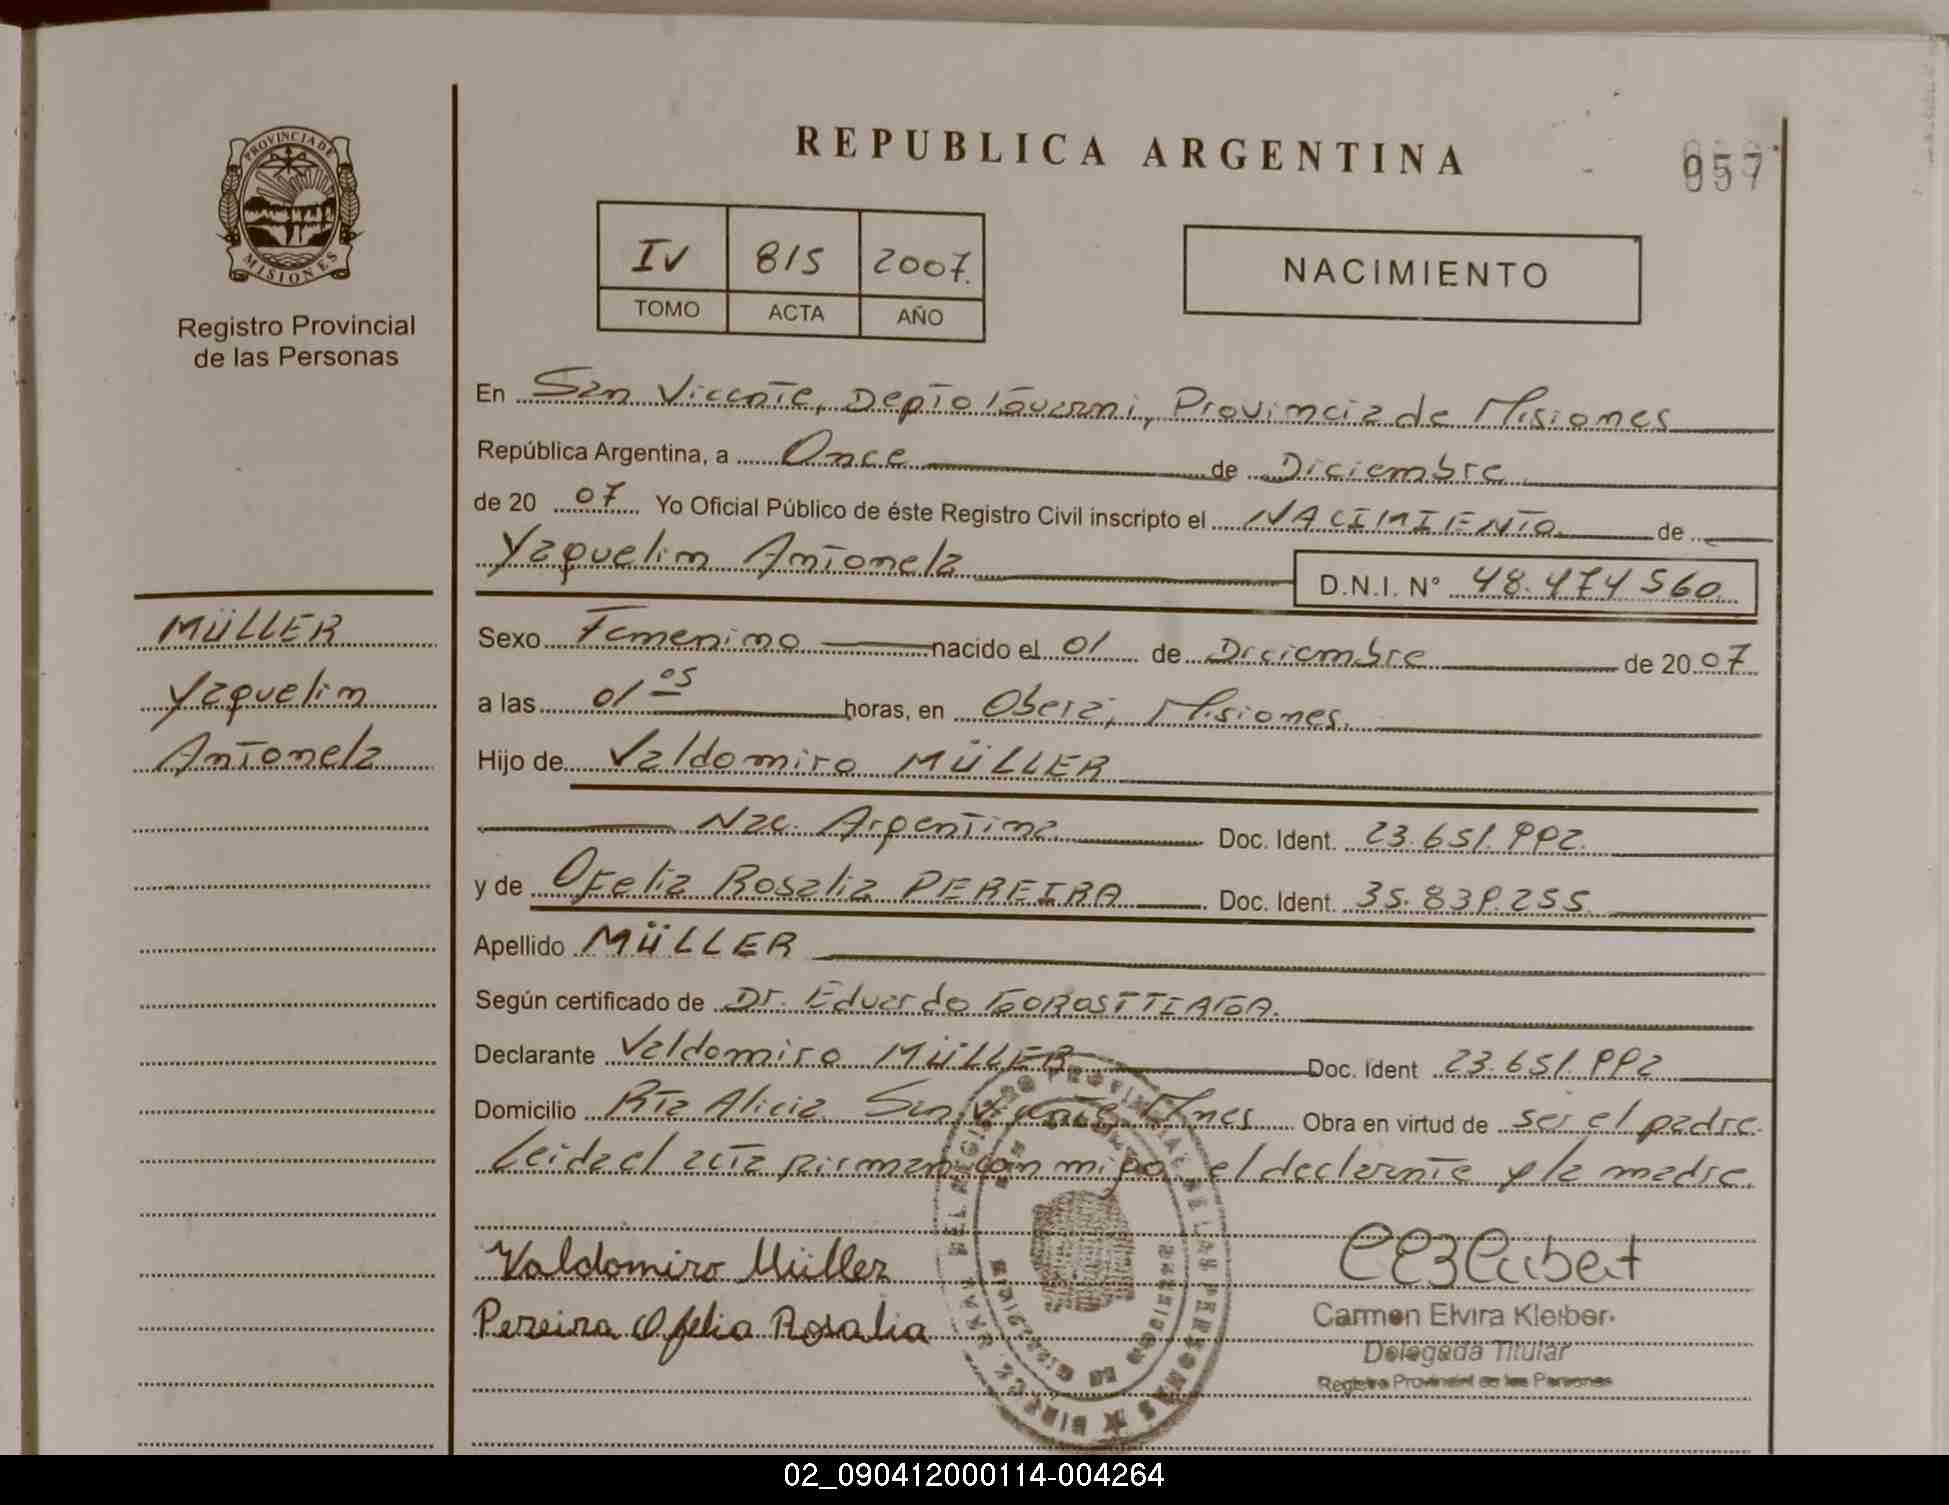 REPUBLICA ARGENTINA
057
PROVINCIA DE
MISIONES
Registro Provincial
de las Personas
IV 815 2007.
TOMO ACTA AÑO
NACIMIENTO
En San Vicente, Depto Guarani, Provincia de Misiones
República Argentina, a Once de Diciembre
de 2007 Yo Oficial Público de éste Registro Civil inscripto el NACIMIENTO de
Yaquelin Antonela D.N.I. N° 48.474560
MÜLLER
Yaquelin
Antonela
Sexo Femenino nacido el 01 de Diciembre de 2007
a las 01 05 horas, en Oberá, Misiones.
Hijo de Valdomiro MÜLLER
Nac. Argentina Doc. Ident. 23.651.992.
y de Ofelia Rosalia PEREIRA Doc. Ident. 35.839.255
Apellido MÜLLER
Según certificado de Dr. Eduardo
Declarante Valdomiro MÜLLER Doc. Ident 23.651.992
Domicilio Rta Alicia San Vicente Mnes Obra en virtud de ser el padre.
Leida el acta firman con migo el declarante y la madre.
Valdomiro Müller
Pereira Ofelia Rosalia
Carmen Elvira Kleiber
Delegada Titular
Registro Provincial de las Personas
02_090412000114-004264